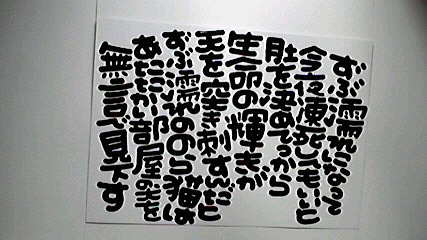 ずぶ濡れになって
今夜凍死してもいいと
肚を決めてるから
生命の輝きが
天を突き刺すんだと
ずぶ濡れののら猫は
あたたかい部屋の炎を
無言で見下す